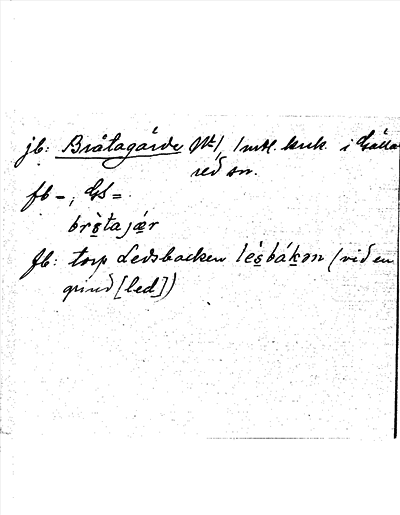 jb: Bråtagärde 1/4, 1 mtl. kruk. i Gälla
red sn.
fb =, GS =
brọ̀tajǽr
fb: torp Ledsbacken lésbákən (vid en
grind [led])